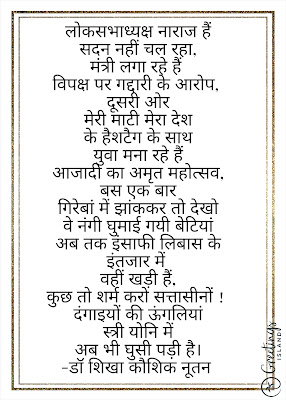 लोकसभाध्यक्ष नाराज हैं
सदन नहीं चल रहा,
मंत्री लगा रहे हैं
विपक्ष पर गद्दारी के आरोप,
दूसरी ओर
मेरी माटी मेरा देश
के हैशटैग के साथ
युवा मना रहे हैं
आजादी का अमृत महोत्सव,
बस एक बार
गिरेबां में झांककर तो देखो
वे नंगी घुमाई गयी बेटियां
अब तक इंसाफी लिबास के
इंतजार में
वहीं खड़ी हैं,
कुछ तो शर्म करों सत्तासीनों !
दंगाइयों की ऊंगलियां
स्त्री योनि में
अब भी घुसी पड़ी है।
-डॉ शिखा कौशिक नूतन
Greetings
ISLAND